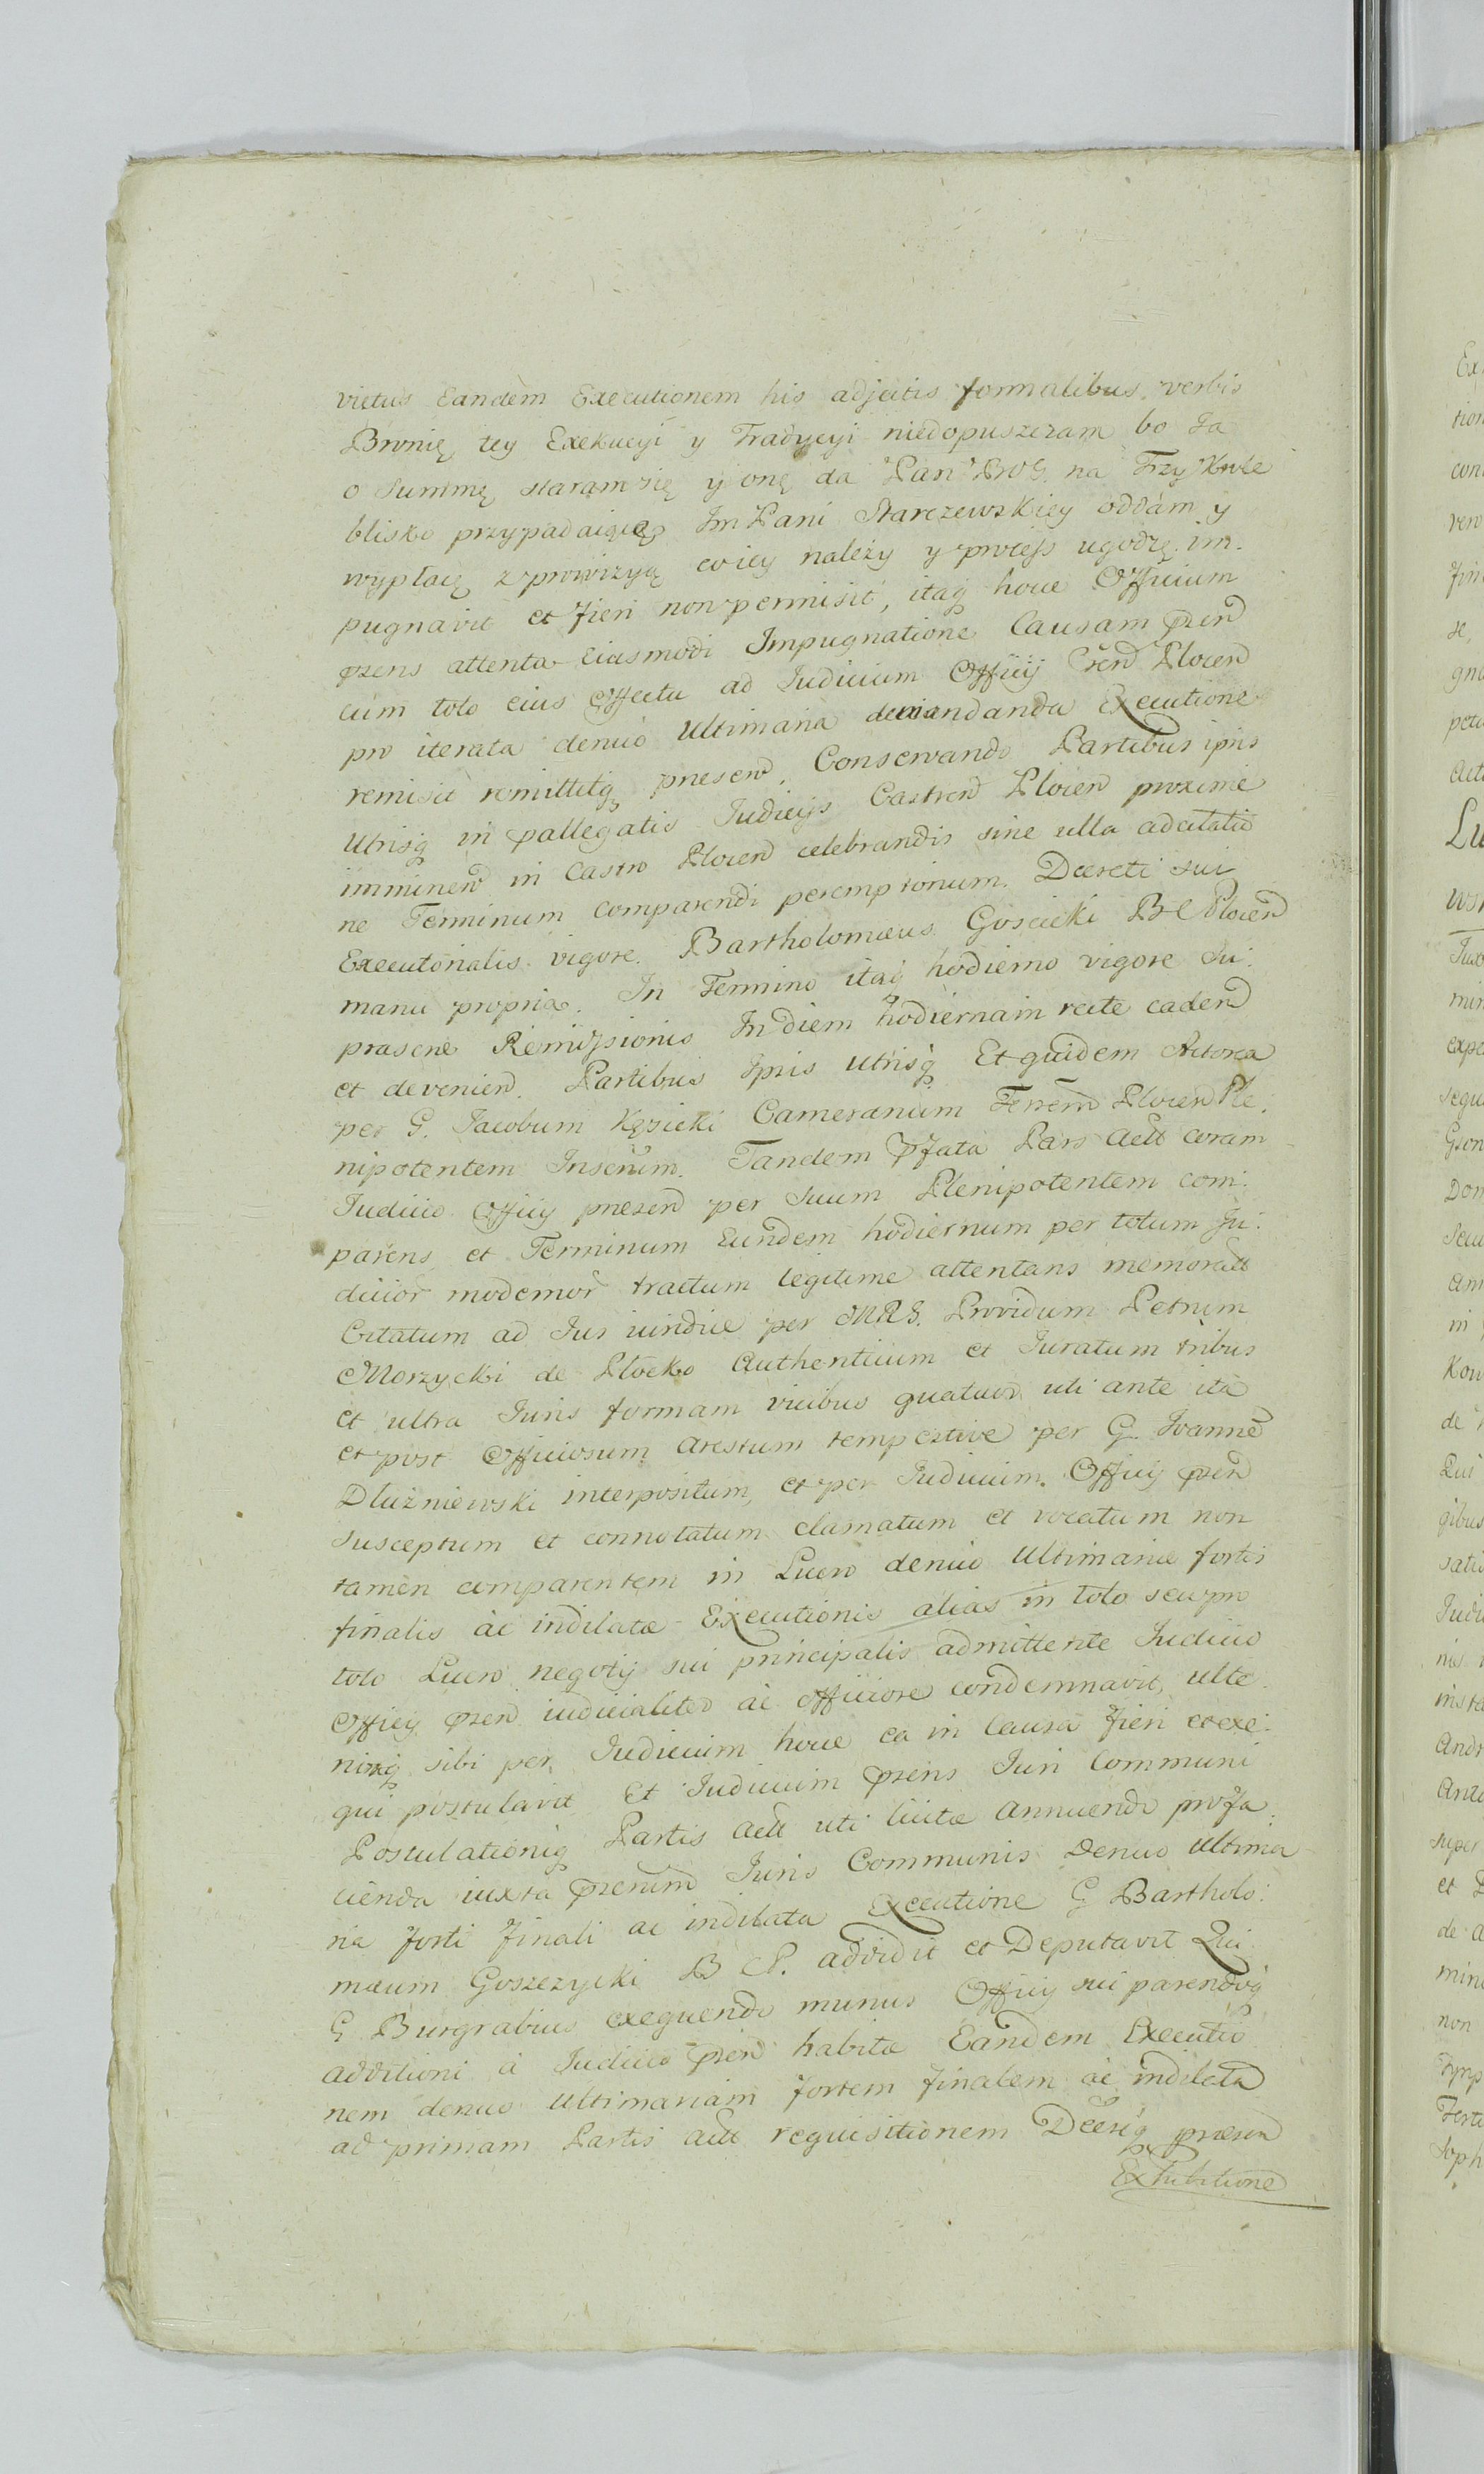 victus Eandem Executionem his adjectis formalibus verbis
Bronię tey Exekucyi y Tradycyi niedopuszczam bo Ja
o Summę staram się y onę da Pan BOG na Trzy Krole
blisko przypadaiące Im Pani Starczewskiey oddam y
wypłacę z prowizyą co iey należy y process ugodzę im-
pugnavit et fieri non permisit, itaq hocce Officium
prens attenta eiusmodi Impugnatione Causam pren
cum toto eius effectu ad Judicium Officij Cren Plocen
pro iterata denuo Ultimaria demandanda Executione
remisit remittitq presen. Conservando Partibus ipsis
Utrisq in pallegatis Judicijs Castren Plocen proxime
imminen in Castro Plocen celebrandis sine ulla adcitatio
ne Terminum comparendi peremptorium. Decreti sui
Executorialis vigore. Bartholomæus Goscicki B C Plocen
manu propria. In Termino itaq hodierno vigore Su-
prascrte Remissionis In diem hodiernam recte caden
et devenien. Partibus Ipsis Utrisq Et quidem Actorea
per G. Jacobum Kęsicki Camerarium Terren Plocen Ple-
nipotentem Inscrum. Tandem pfata Pars Actt coram
Judicio Officij presen per Suum Plenipotentem com-
parens et Terminum Eundem hodiernum per totum Ju-
dicior modernor tractum legitime attentans memoratt
Citatum ad Jus iuridice per MRS. Providum Petrum
Morzycki de Płocko Authenticum et Juratum tribus
et ultra Juris formam vicibus quatuor uti ante ita
et post Officiosum Arestum tempestive per G. Joanne
Dłużniewski interpositum, et per Judicium Officij pren
susceptum et connotatum clamatum et vocatum non
tamen comparentem in Lucro denuo Ultimariæ fortis
finalis ac indilatæ Executionis alias in toto seu pro
toto Lucro negotij sui principalis admittente Judicio
Officij pren iudicialiter ac officiose condemnavit, ulte-
riorq sibi per Judicium hocce ea in Causa fieri et exe-
qui postulavit Et Judicium prens Juri Communi
Postulationiq Partis Actt uti licitæ Annuendo pro fa-
cienda iuxta prerum Juris Communis Denuo Ultima-
ria forti finali ac indilata Executione G Bartholo-
mæum Goszczycki B C P. addidit et Deputavit Qui
G Burgrabius exequendo munus Officij sui parendoq
additioni a Judicio pren habitæ Eandem Executio
nem denuo Ultimariam fortem finalem ac indilata
ad primam Partis Actt requisitionem Dcreiq presen
Exhibitione